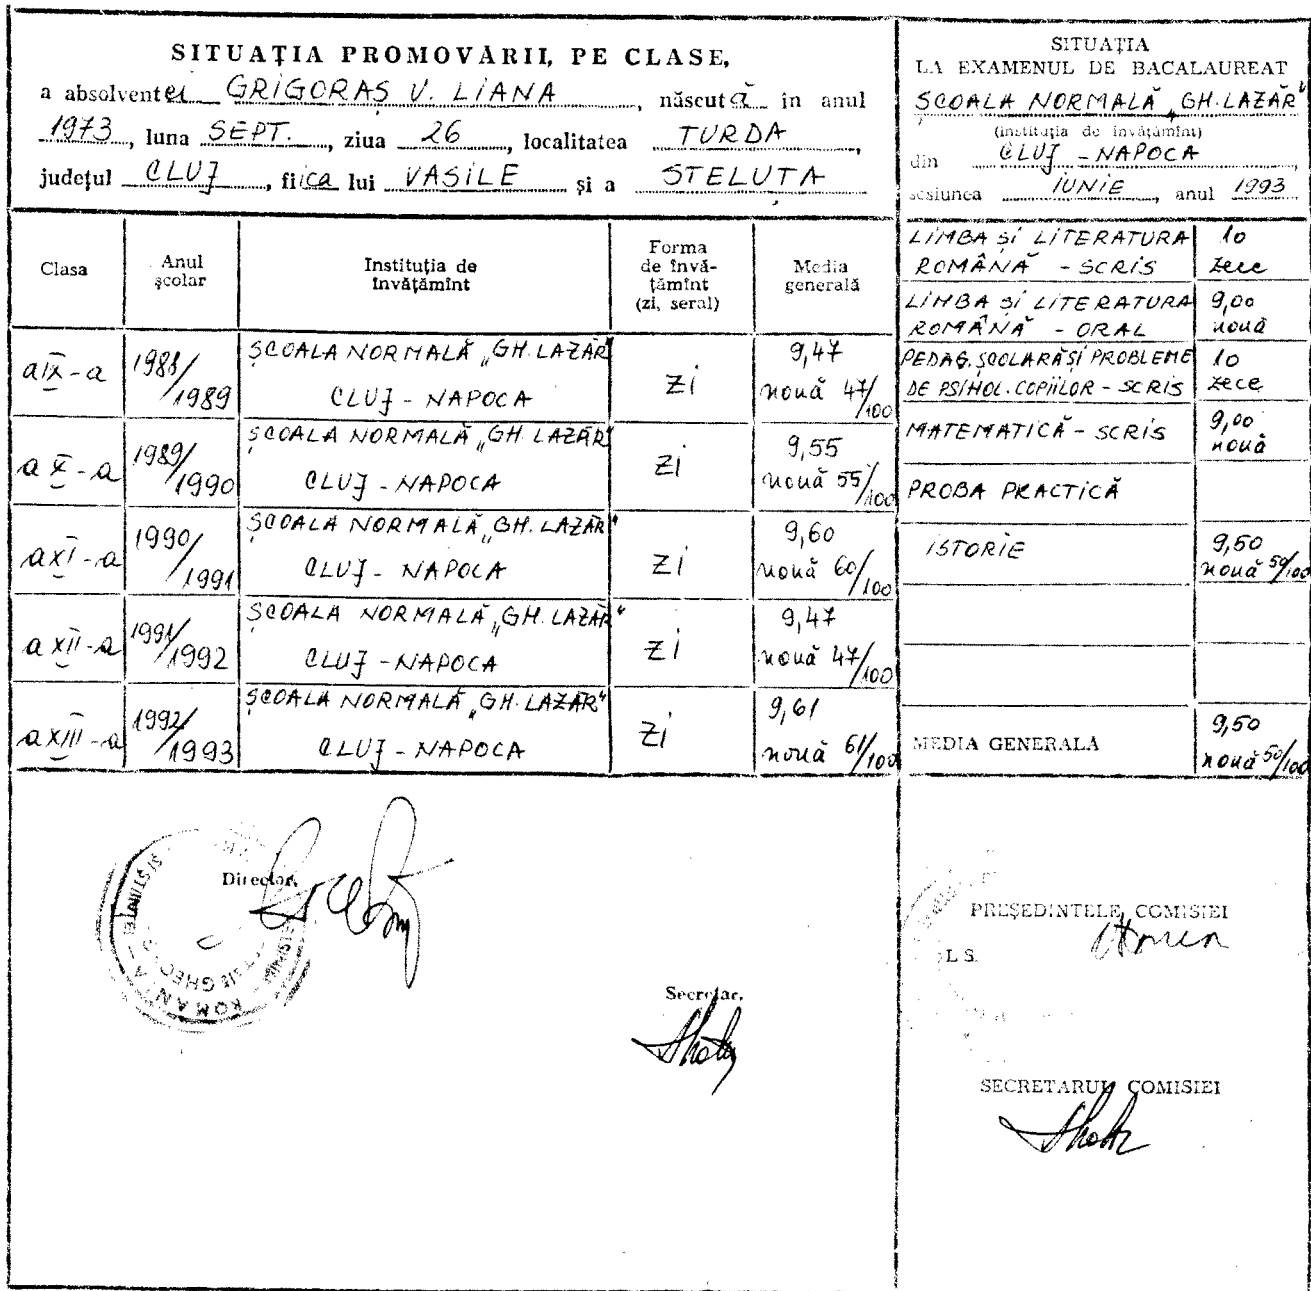 SITUAȚIA PROMOVĂRII, PE CLASE,
a absolventei GRIGORAȘ V. LIANA, născută în anul
1973, luna SEPT., ziua 26, localitatea TURDA,
județul CLUJ, fiica lui VASILE și a STELUȚA
Clasa
Anul
școlar
Instituția de
învățămînt
Forma
de învă-
țămînt
(zi, seral)
Media
generală
a IX-a 1988/1989 ȘCOALA NORMALĂ „GH. LAZĂR"
CLUJ - NAPOCA zi 9,47
nouă 47/100
a X-a 1989/1990 ȘCOALA NORMALĂ „GH. LAZĂR"
CLUJ - NAPOCA zi 9,55
nouă 55/100
a XI-a 1990/1991 ȘCOALA NORMALĂ „GH. LAZĂR"
CLUJ - NAPOCA zi 9,60
nouă 60/100
a XII-a 1991/1992 ȘCOALA NORMALĂ „GH. LAZĂR"
CLUJ - NAPOCA zi 9,47
nouă 47/100
a XIII-a 1992/1993 ȘCOALA NORMALĂ „GH. LAZĂR"
CLUJ - NAPOCA zi 9,61
nouă 61/100
Director,
Secretar,
SITUAȚIA
LA EXAMENUL DE BACALAUREAT
ȘCOALA NORMALĂ „GH. LAZĂR"
(instituția de învățămînt)
din CLUJ - NAPOCA
sesiunea IUNIE, anul 1993
LIMBA ȘI LITERATURA 10
ROMÂNĂ - SCRIS zece
LIMBA ȘI LITERATURA 9,00
ROMÂNĂ - ORAL nouă
PEDAG. ȘCOLARĂ ȘI PROBLEME 10
DE PSIHOL. COPIILOR - SCRIS zece
MATEMATICĂ - SCRIS 9,00
nouă
PROBA PRACTICĂ
ISTORIE 9,50
nouă 50/100
MEDIA GENERALĂ 9,50
nouă 50/100
PREȘEDINTELE COMISIEI
L.S.
SECRETARUL COMISIEI
ROMANIA